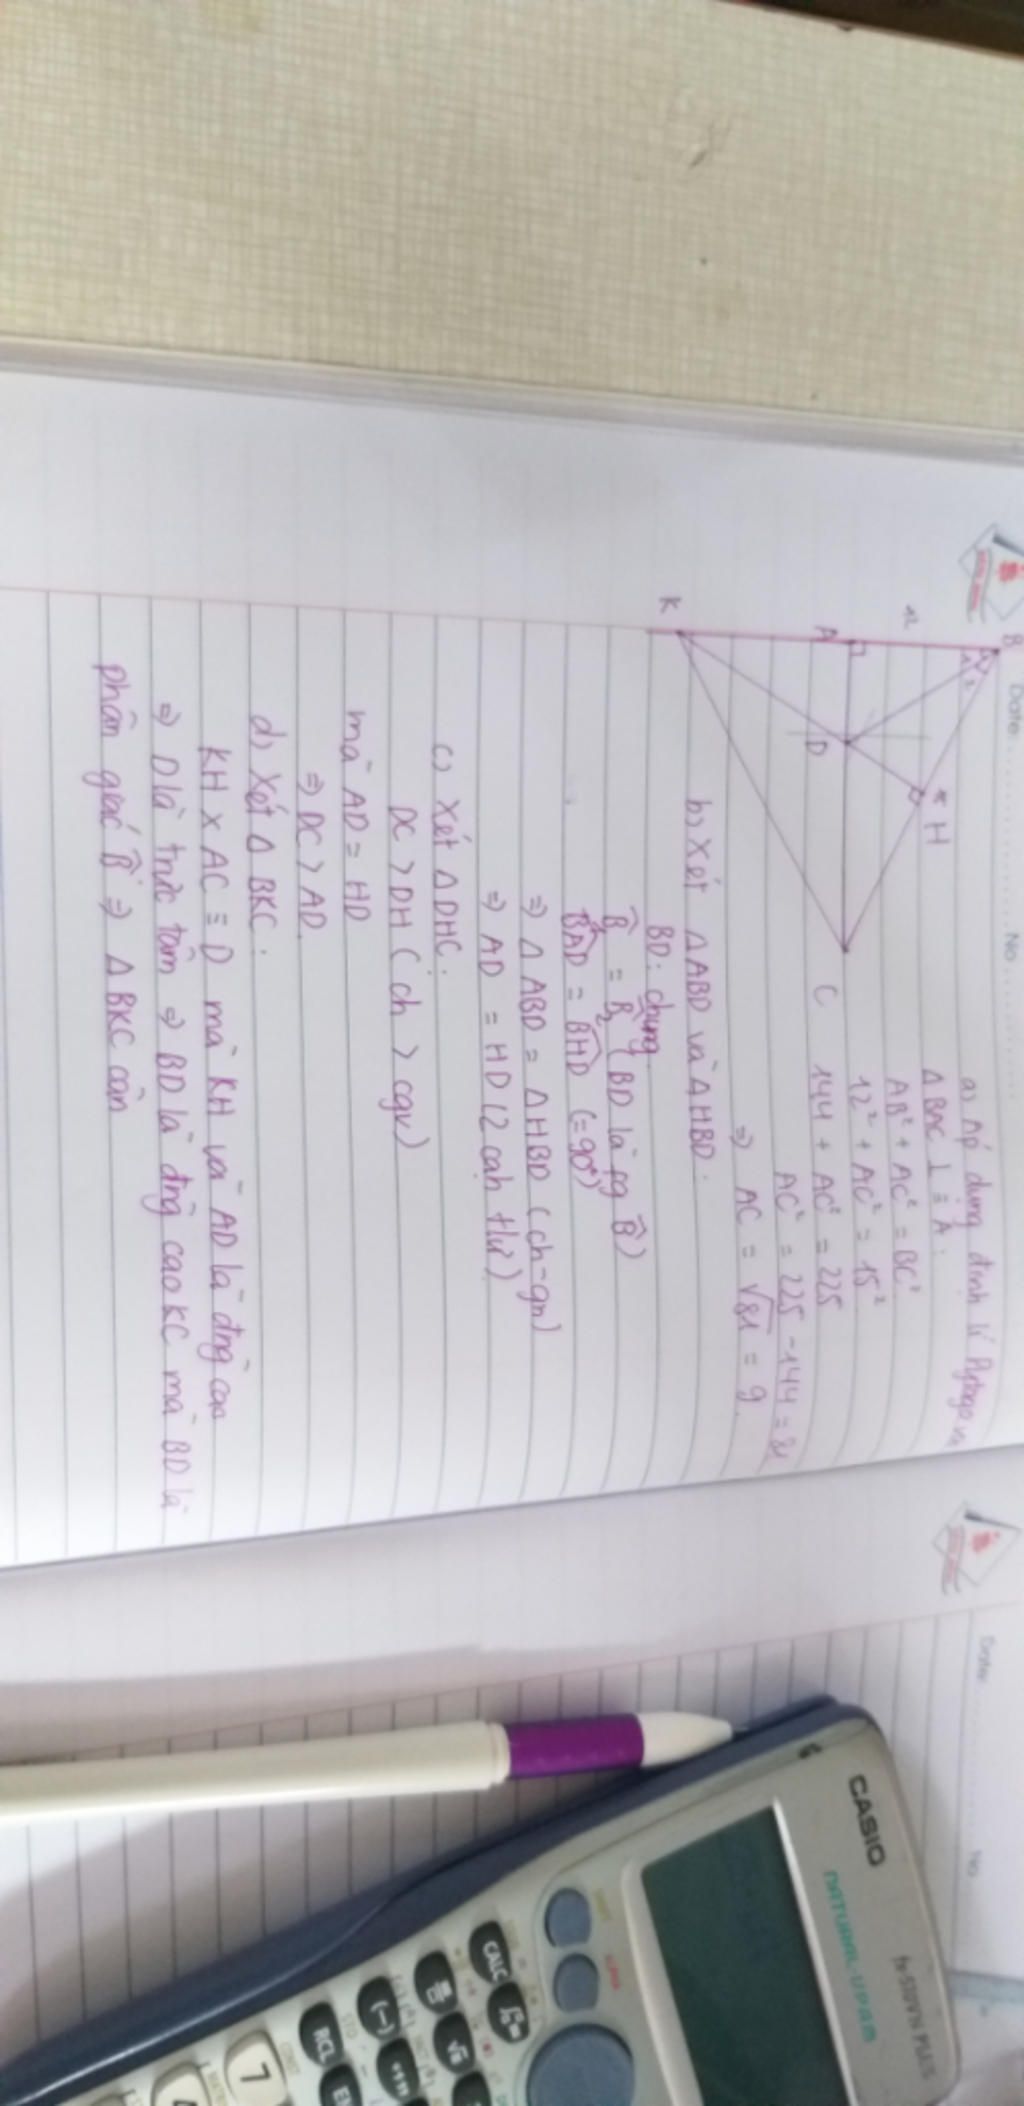 Date: No
B
12
A
K
D
H
C
a) Áp dụng định lí Pytago
Δ BAC ⊥ ≡ A:
AB² + AC² = BC²
12² + AC² = 15²
144 + AC² = 225
AC² = 225 - 144 = 81
⇒ AC = √81 = 9
b) Xét Δ ABD và Δ HBD.
BD: chung
B̂₁ = B̂₂ (BD là pg B̂)
BAD = BHD (= 90°)
⇒ Δ ABD = Δ HBD (ch-gn)
⇒ AD = HD (2 cạh t/ư)
c) Xét Δ DHC:
DC > DH (ch > cgv)
mà AD = HD
⇒ DC > AD.
d) Xét Δ BKC:
KH x AC ≡ D mà KH và AD là đng cao
⇒ D là trực tâm ⇒ BD là đng cao KC mà BD là
phân giác B̂ ⇒ Δ BKC cân
Date: No
CASIO
fx-570VN PLUS
NATURAL-V.P.A.M.
SHIFT
ALPHA
CALC
(-)
RCL
7
4